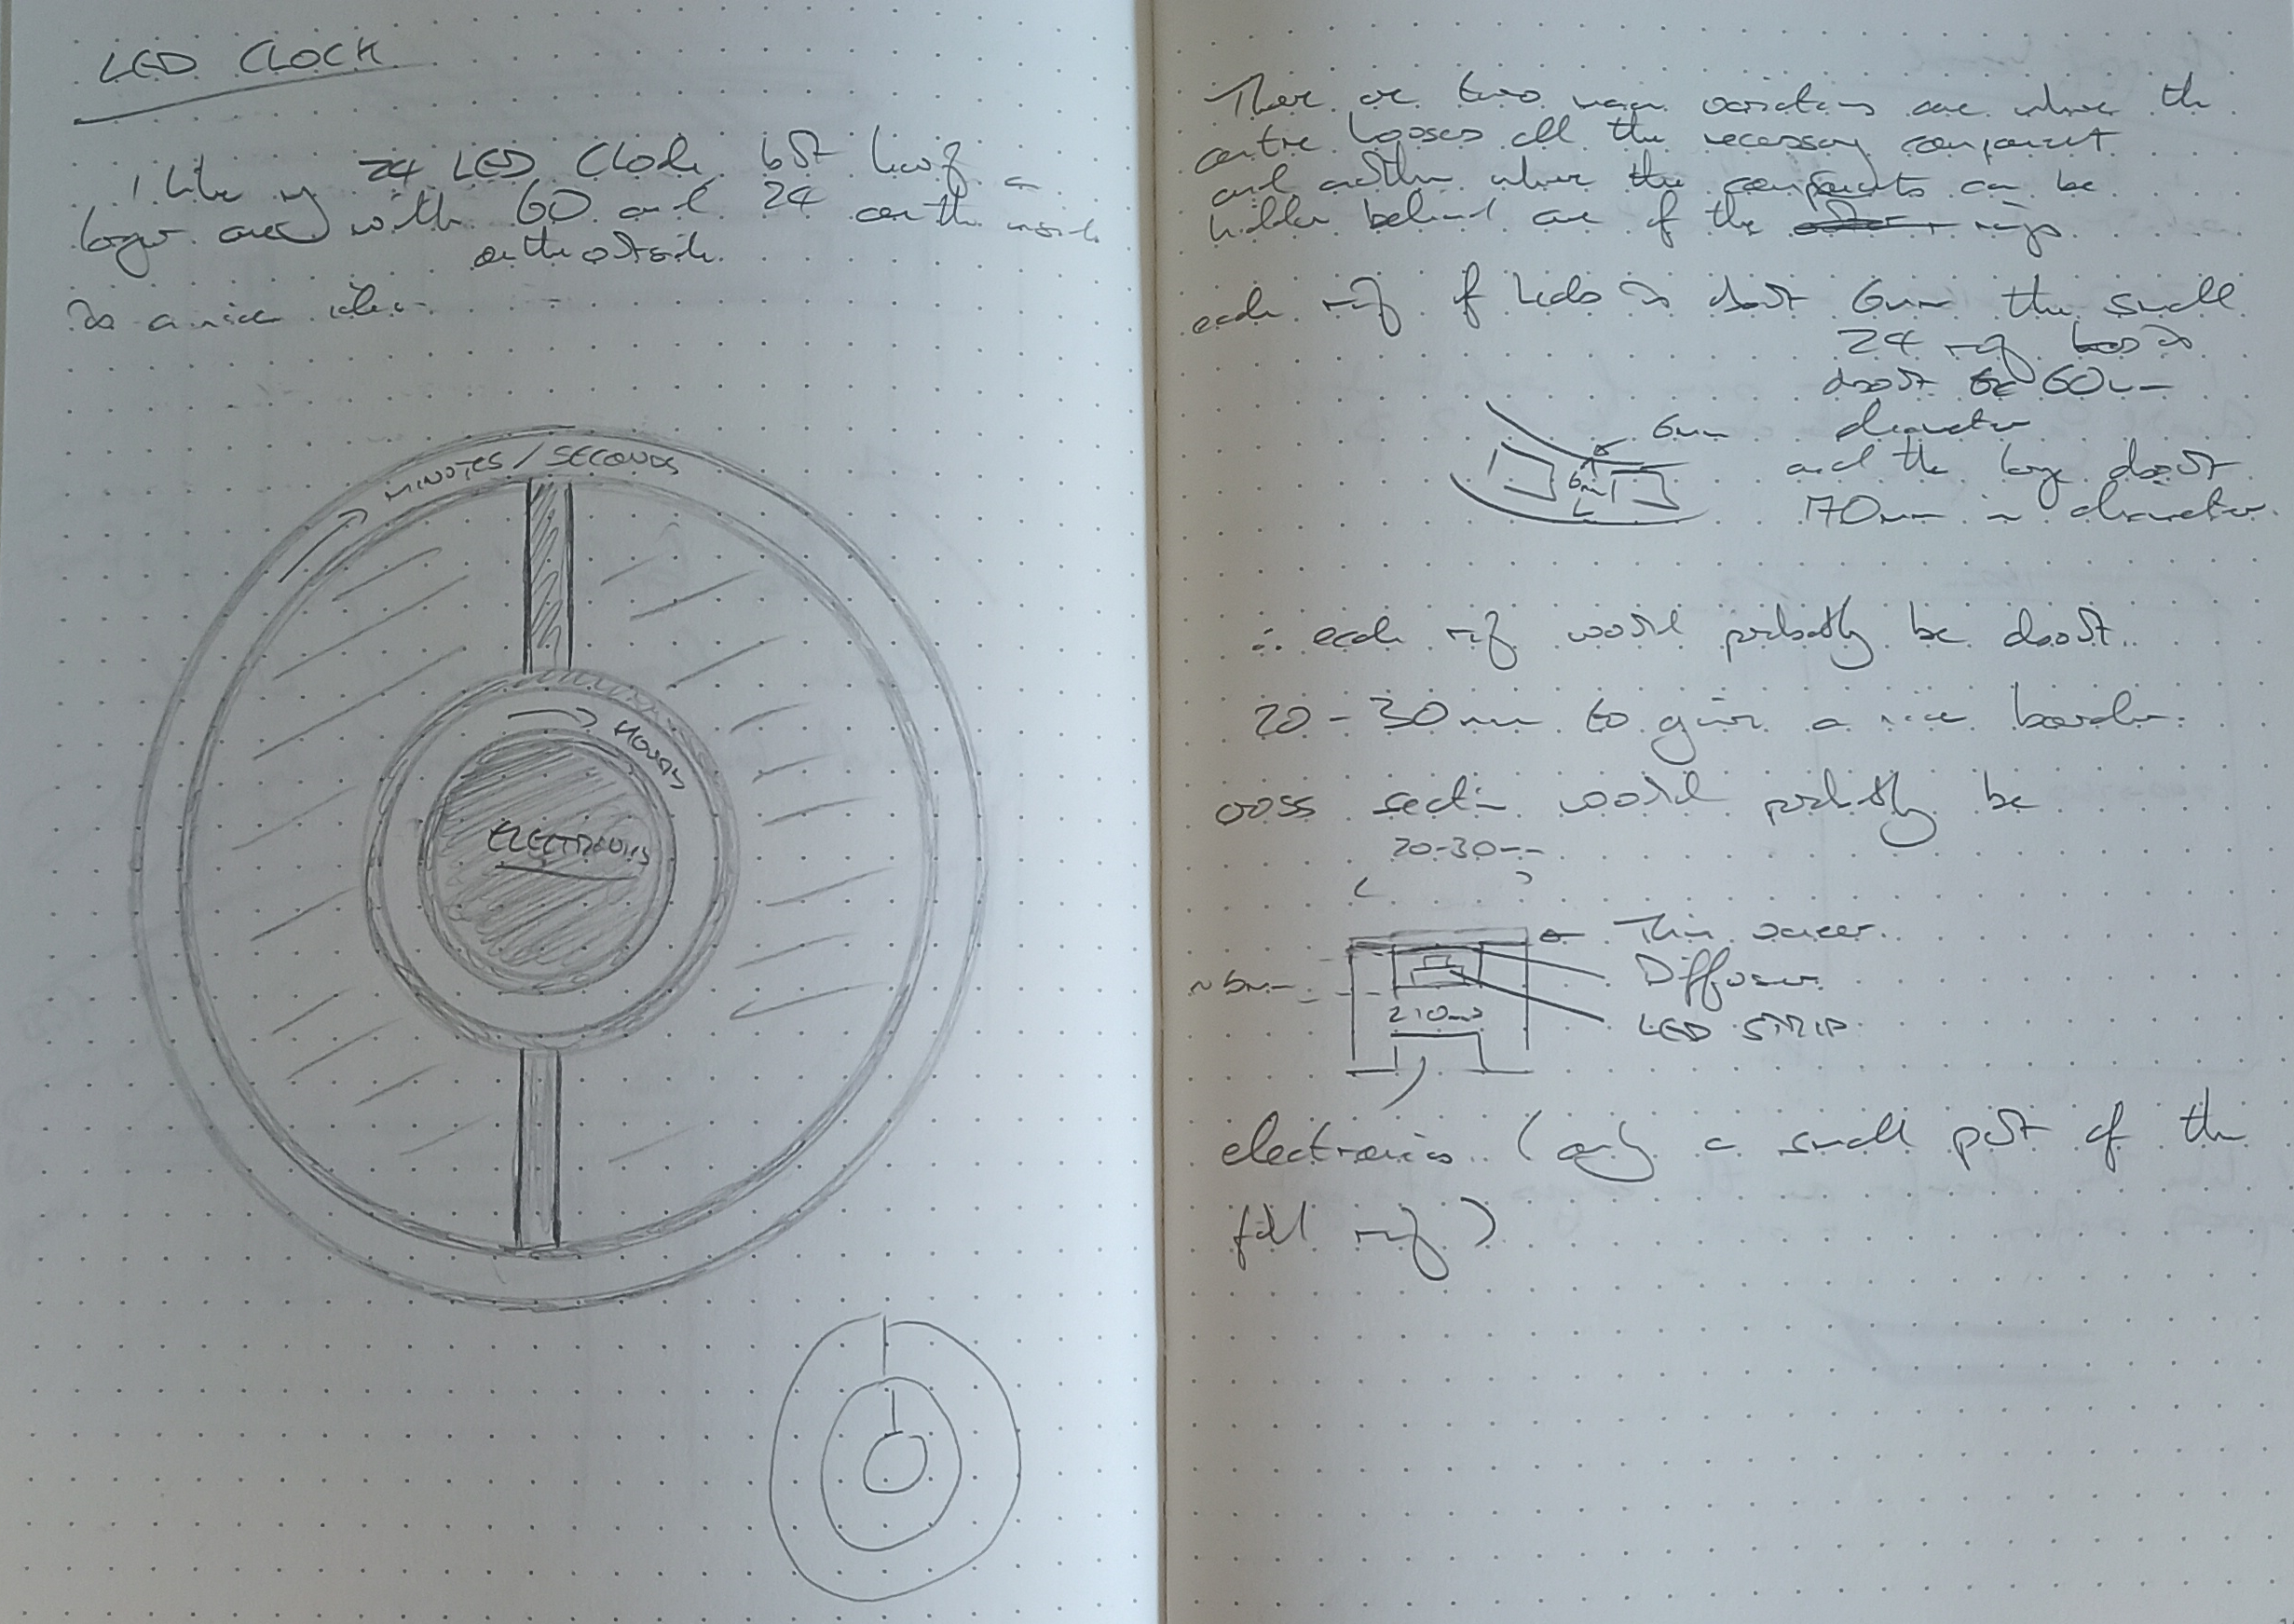 LED CLOCK
I like my 24 LED Clock but having a
larger one with 60 and 24 on the inside
on the outside.
is a nice idea.
MINUTES / SECONDS
HOURS
ELECTRONICS
There are two main variations one where the
centre houses all the necessary component
and another where the components can be
hidden behind one of the rings
each ring of leds is about 6mm the small
24 ring is
about 60mm
diameter
and the large about
170mm in diameter.
6mm
6mm
∴ each ring would probably be about
20-30mm to give a nice border.
cross section would probably be
20-30mm
Thin veneer.
Diffuser
LED STRIP
~6mm
210mm
electronics (only a small part of the
full ring)